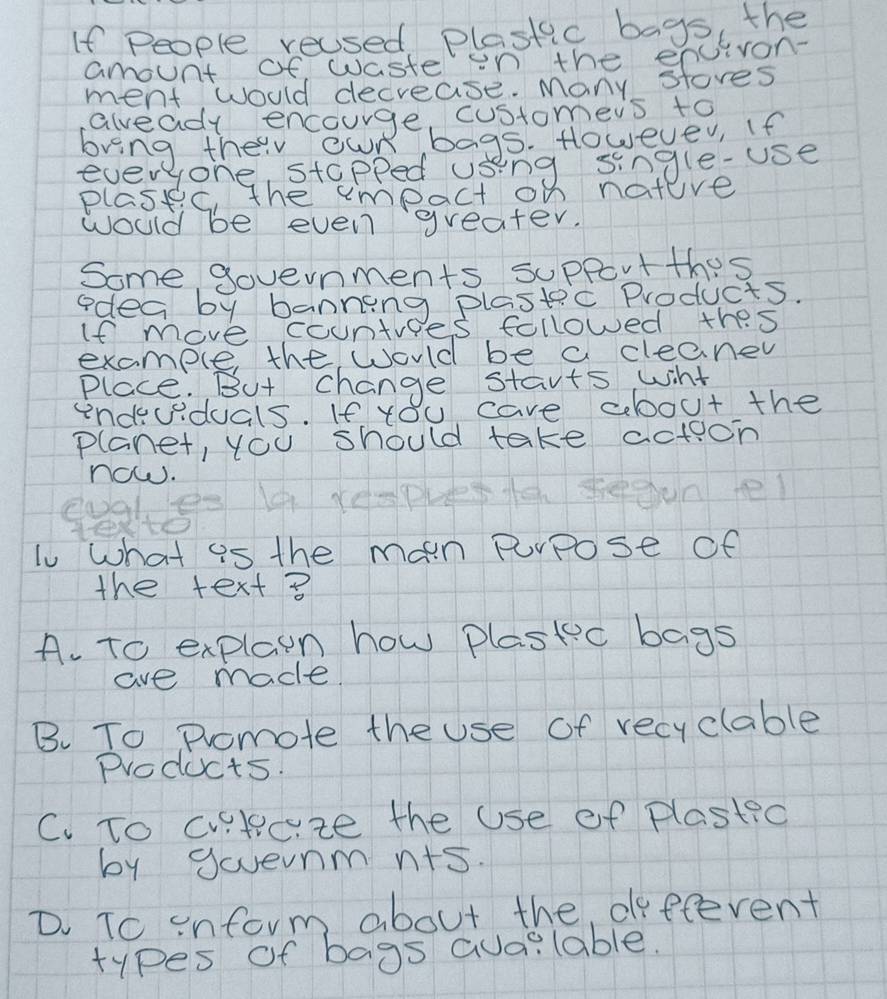 If People reused plastic bags, the
amount of waste in the environ-
ment would decrease. Many stores
already encourge customers to
bring their own bags. However, If
everyone stopped using single-use
plastic, the impact on nature
would be even greater.
Some governments support this
idea by banning plastic Products.
If more countries followed this
example, the world be a cleaner
Place. But change starts wiht
individuals. If you care about the
planet, you should take action
now.
cual es la respuesta segun el
texto
1. What is the main Purpose of
the text?
A. To explain how plastic bags
are made.
B. To Promote the use of recyclable
Products.
C. To criticize the use of plastic
by governm nts.
D. To inform about the different
types of bags available.